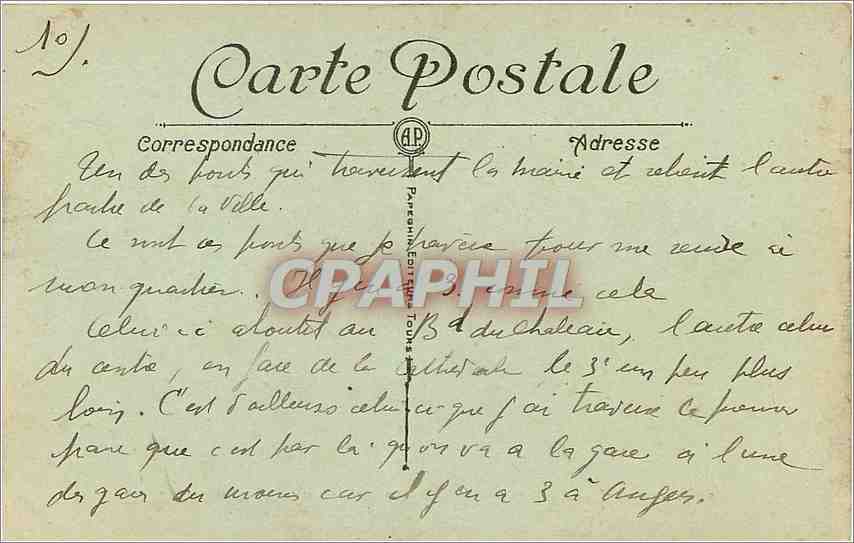 10).
Carte Postale
A.P.
Correspondance
Adresse
Un des ponts qui traversent la Maine et relient l'autre
partie de la Ville.
Ce sont ces ponts que je traverse pour me rendre à
mon quartier. Il y en a 3 comme cela
Celui-ci aboutit au Bd du Chateau, l'autre celui
du centre, en face de la Cathédrale le 3e un peu plus
loin. C'est d'ailleurs celui-ci que j'ai traversé le premier
parce que c'est par là qu'on va a la gare à l'une
des gares du moins car il y en a 3 à Angers.
PAPEGHIN EDITEUR TOURS
CPARHIL